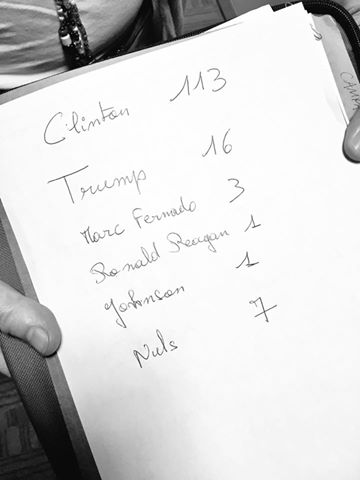 Clinton 113
Trump 16
Marc Fernado 3
Ronald Reagan 1
Johnson 1
Nuls 7